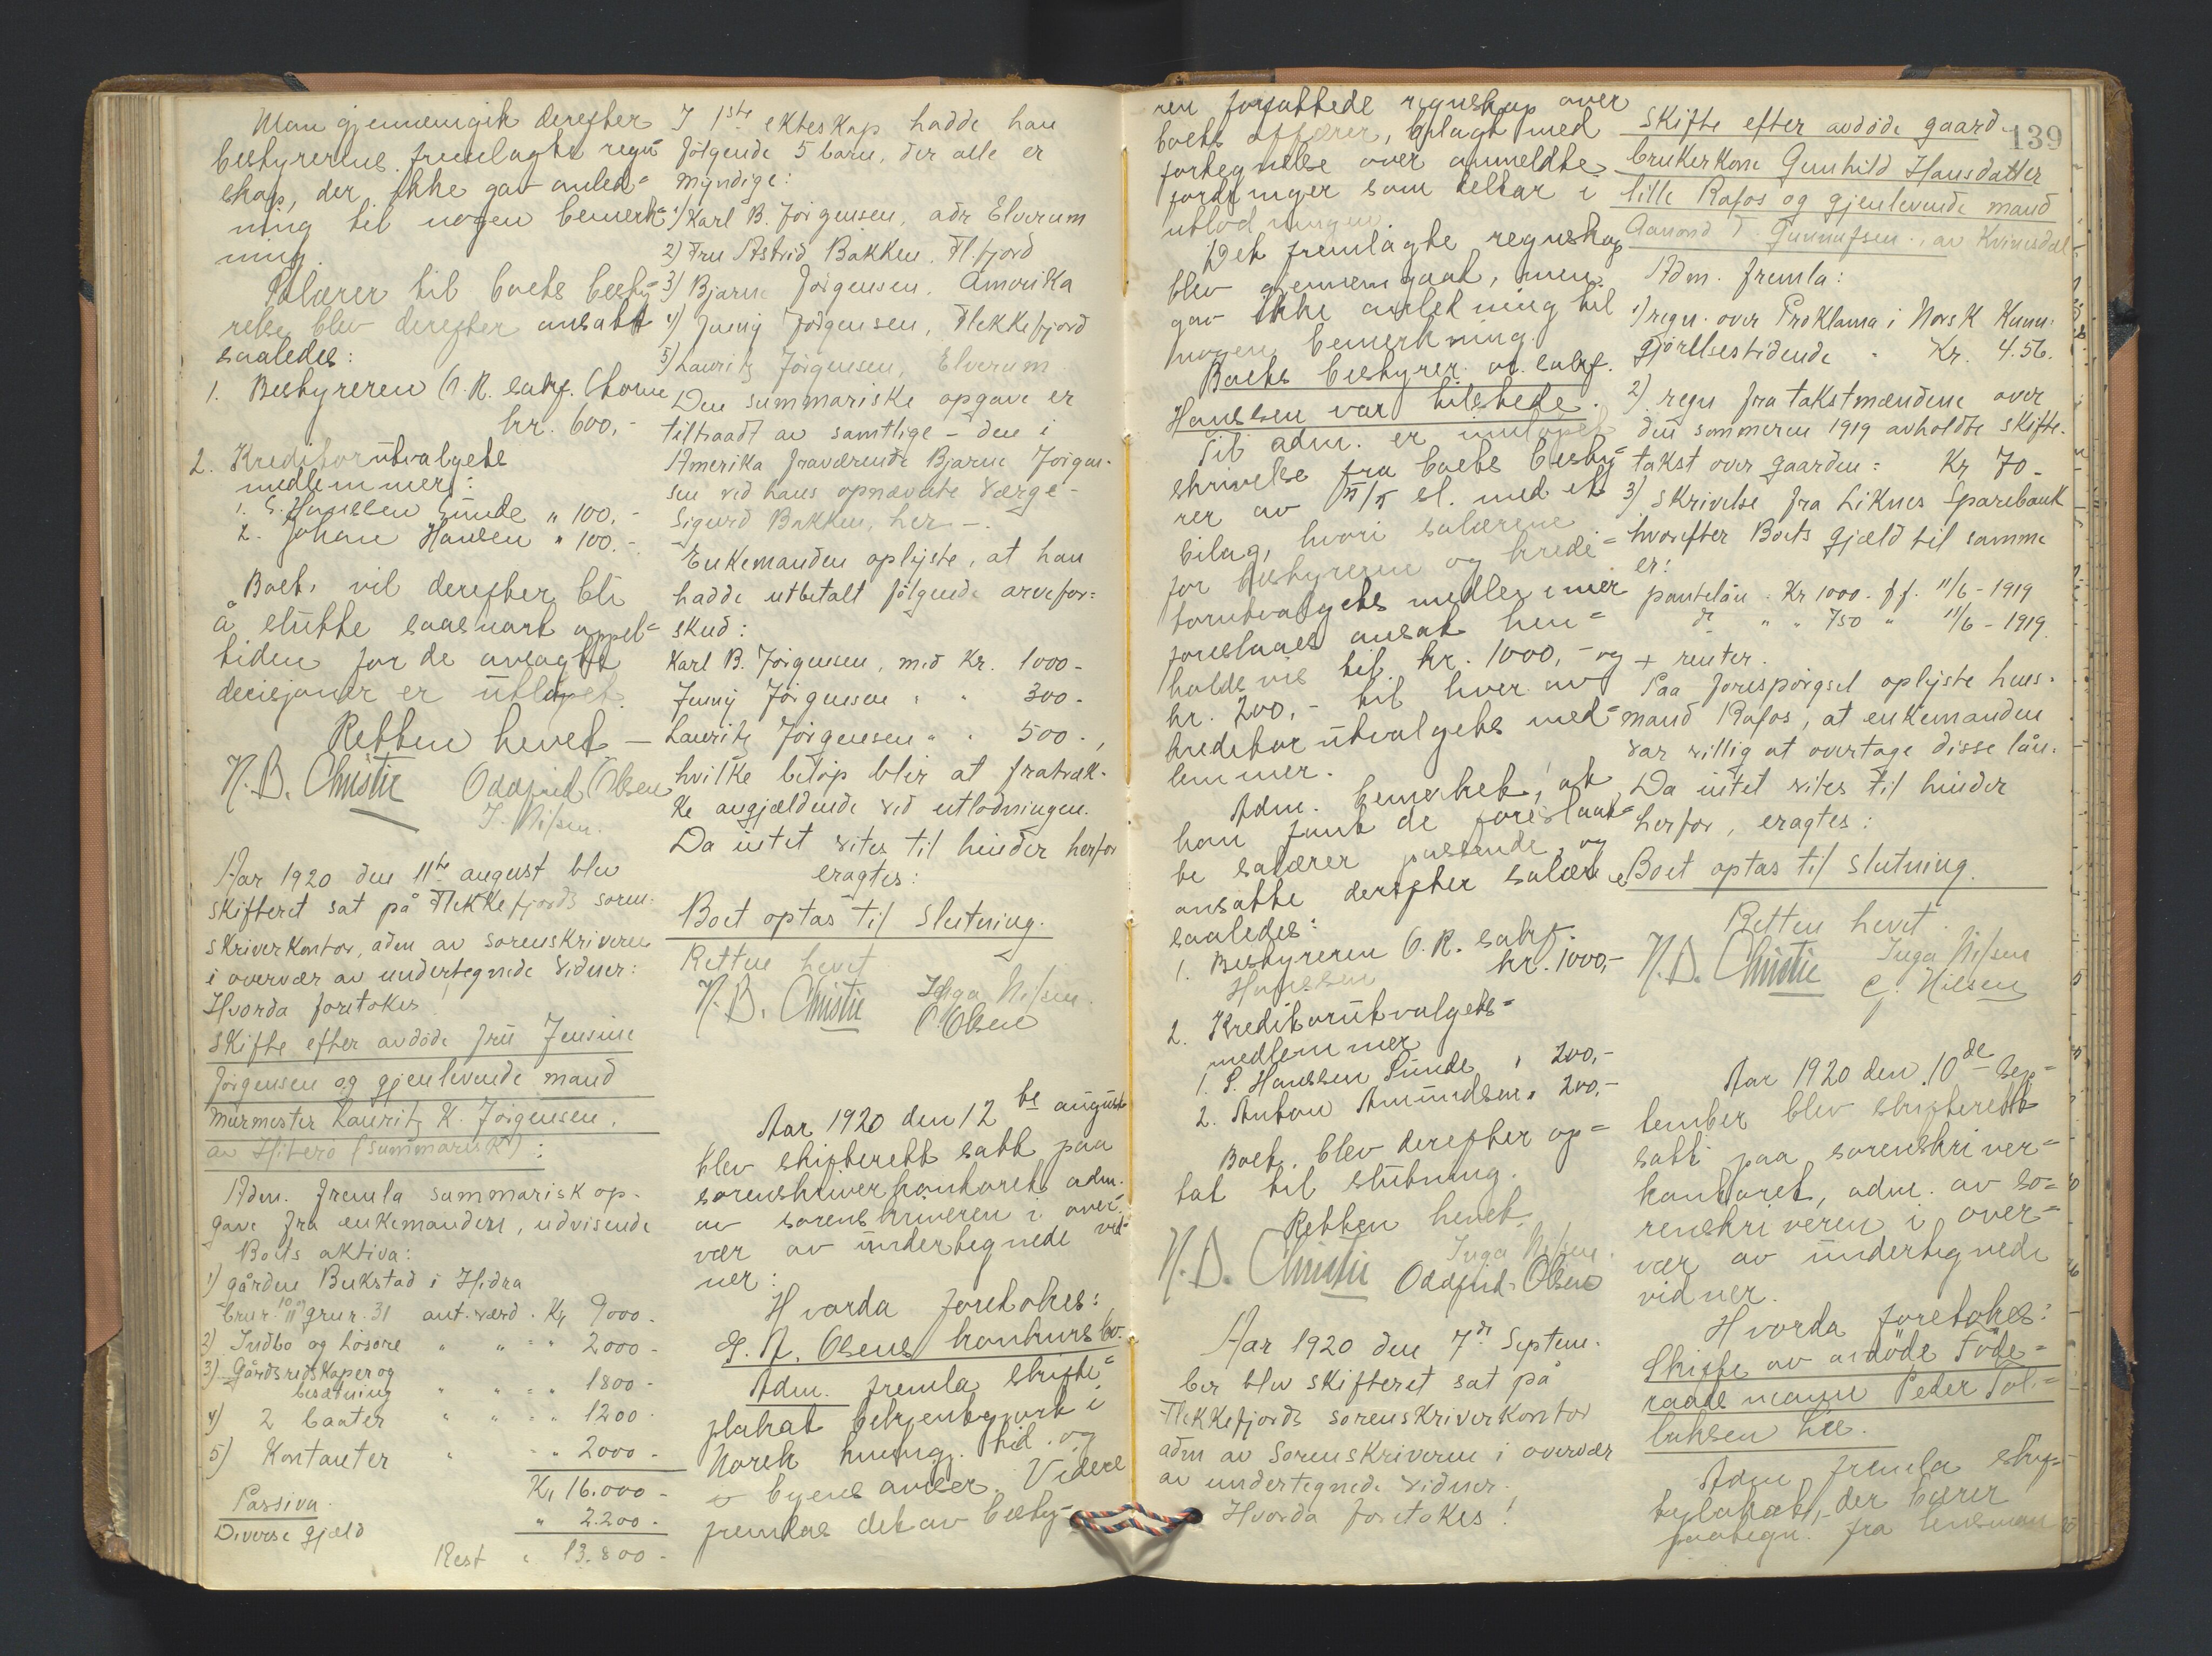 Man gjennemgik derefter
bestyrerens fremlagte regn-
skap, der ikke gav anled=
ning til nogen bemerk-
ning.
Salærer til boets besty-
relse blev derefter ansatt
saaledes:
1. Bestyreren O.R. sakf.
kr. 600,-
2. Kreditorutvalgets
medlemmer:
1. S. Hanssen Sunde " 100,-
2. Johan Hansen " 100.-
Boet vil derefter bli
å slutte saasnart appel=
tiden for de avsagte
decisjoner er utløpet.
Retten hevet —
N.B. Christie Oddfrid Olsen
I. Nilsen.
Aar 1920 den 11te august blev
skifteret sat på Flekkefjords soren-
skriverkontor, adm av sorenskriveren
i overvær av undertegnede vidner:
Hvorda foretokes
Skifte efter avdöde fru Jensine
Jörgensen og gjenlevende mand
murmester Lauritz K. Jörgensen,
av Hiterö (summarisk):
Adm. fremla summarisk op-
gave fra enkemanden, udvisende
Boets aktiva:
1) gården Bukstad i Hidra
brur. 10 og 11 grur. 31 ant. værd. Kr 9000.
2) Indbo og lösöre " " = " 2000 -
3) Gårdsredskaper og
besætning " " = " 1800 -
4) 2 baater " " = " 1200 -
5) Kontanter " = " 2000 -
Kr 16.000 -
Passiva.
Diverse gjeld " 2.200 -
Rest " 13.800 -
I 1ste ekteskap hadde han
følgende 5 barn, der alle er
myndige:
1) Karl B. Jörgensen, adr Elverum
2) Fru Astrid Bakken, Fl.fjord
3) Bjarne Jörgensen, Amerika
4) Jenny Jörgensen, Flekkefjord
5) Lauritz Jörgensen, Elverum.
Den summariske opgave er
tiltraadt av samtlige - den i
Amerika fraværende Bjarne Jörgen-
sen ved hans opnævnte værge -
Sigurd Bakken, her -.
Enkemanden oplyste, at han
hadde utbetalt følgende arvefor=
skud:
Karl B. Jörgensen, med Kr. 1000 -
Jenny Jörgensen " " 300 -
Lauritz Jörgensen " " 500 -,
hvilke beløp blir at fratræk-
ke angjældende ved utlodningen.
Da intet vites til hinder herfor
eragtes:
Boet optas til slutning.
Retten hevet
N.B. Christie Inga Nilsen.
O. Olsen
Aar 1920 den 12te august
blev skifterett satt paa
sorenskriverkontoret, adm.
av sorenskriveren i over-
vær av undertegnede vid-
ner:
Hvorda foretokes:
G. A. Olsens konkursbo.
Adm. fremla skifte=
plakat bekjentgjort i
Norsk kundg. tid. og
i byens aviser. Videre
fremlas det av besty-
139
ren forfattede regnskap over
boets affærer, bilagt med
fortegnelse over anmeldte
fordringer som deltar i
utlodningen.
Det fremlagte regnskap
blev gjennemgaat, men
gav ikke anledning til
nogen bemerkning.
Boets bestyrer o.r. sakf.
Hanssen var tilstede.
Til adm. er innløpet
skrivelse fra boets besty-
rer av sl. med et
bilag, hvori salærene
for bestyreren og kredi=
torutvalgets medlemmer
foreslaaes ansat hen=
holdsvis til kr. 1000,- og
kr. 200,- til hver av
kreditorutvalgets med=
lemmer.
Adm. bemerket, at
han fant de foreslaat=
te salærer passende, og
ansatte derefter salærene
saaledes:
1. Bestyreren O.R. sakf.
Hanssen kr. 1000,-
2. Kreditorutvalgets=
medlemmer
1. S. Hanssen Sunde " 200,-
2. Anton Amundsen " 200,-
Boet blev derefter op=
tat til slutning.
Retten hevet.
N.B. Christie Inga Nilsen.
Oddfrid Olsen
Aar 1920 den 7de Septem-
ber blev skifteret sat på
Flekkefjords sorenskriverkontor
adm av Sorenskriveren i overvær
av undertegnede vidner.
Hvorda foretokes!
Skifte efter avdöde gaard-
brukerkone Gunhild Hansdatter
lille Rafos og gjenlevende mand
Aanond T. Gunnufsen, av Kvinesdal
Adm. fremla:
1) regn. over Proklama i Norsk Kunn-
gjörelsestidende - Kr. 4.56.
2) regn fra takstmændene over
den sommeren 1919 avholdte skifte-
takst over gaarden = Kr 70 -
3) Skrivelse fra Liknes Sparebank
hvorefter Boets gjæld til samme
er:
pantelån Kr 1000. ff. 11/6 - 1919
do " " 750 " 11/6 - 1919.
+ renter.
Paa forespörgsel oplyste hus-
mand Rafos, at enkemanden
var villig at overtage disse lån.
Da intet vites til hinder
herfor, eragtes:
Boet optas til slutning.
Retten hevet.
N.B. Christie Inga Nilsen
C. Nilsen
Aar 1920 den 10de Sep=
tember blev skifterett
satt paa sorenskriver=
kontoret, adm. av so=
renskriveren i over=
vær av undertegnede
vidner.
Hvorda foretokes:
Skifte av avdöde Föde=
raadsmann Peder Tol=
laksen
Adm. fremla skif=
teplakat, der bærer
paategn. fra lensmann